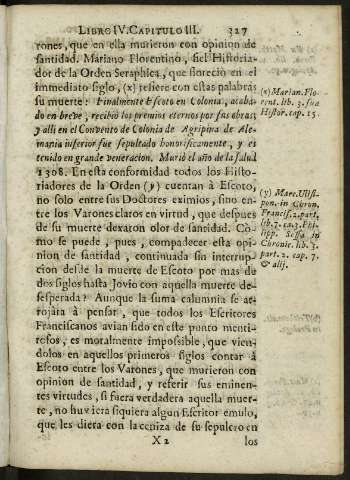 LIBRO IV. CAPITULO III. 327
rones, que en ella murieron con opinion de
santidad. Mariano Florentino, fiel Historia-
dor de la Orden Seraphica, que floreciò en el
immediato siglo, (x) refiere con estas palabras
su muerte: Finalmente Escoto en Colonia, acaba-
do en breve, recibiò los premios eternos por sus obras;
y alli en el Convento de Colonia de Agripina de Ale-
mania inferior fue sepultado honorificamente, y es
tenido en grande veneracion. Muriò el año de la salud
1308. En esta conformidad todos los Histo-
riadores de la Orden (y) cuentan à Escoto,
no solo entre sus Doctores eximios, sino en-
tre los Varones claros en virtud, que despues
de su muerte dexaron olor de santidad. Cò-
mo se puede, pues, compadecer esta opi-
nion de santidad, continuada sin interrup-
cion desde la muerte de Escoto por mas de
dos siglos hasta Jovio con aquella muerte de-
sesperada? Aunque la suma calumnia se ar-
rojàra à pensar, que todos los Escritores
Franciscanos avian sido en este punto menti-
rosos, es moralmente impossible, que vien-
dolos en aquellos primeros siglos contar à
Escoto entre los Varones, que murieron con
opinion de santidad, y referir sus eminen-
tes virtudes, si fuera verdadera aquella muer-
te, no huviera siquiera algun Escritor emulo,
que les diera con la ceniza de su sepulcro en
X 2 los
(x) Marian. Flo-
rent. lib. 3. sua
Histor. cap. 15.
(y) Marc. Ulisi-
pon. in Chron.
Francis. 2. part.
lib. 7. ca. 9. Phi-
lipp. Sossa in
Chronic. lib. 3.
part. 2. cap. 7.
& alij.